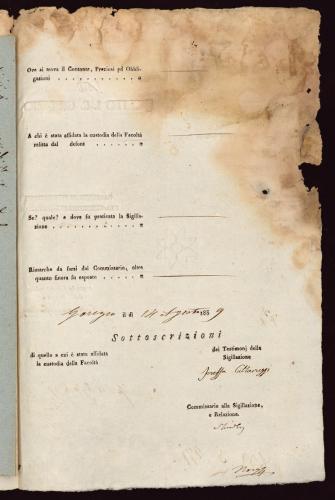 Ove si trova il Contante, Preziosi ed Obbli-
gazioni . . . . . . . . . . . . "
A chi è stata affidata la custodia della Facoltà
relitta dal defonto . . . . . . "
Se? quale? e dove fu praticata la Sigilla-
zione . . . . . . . . . . . . . "
Rimarche da farsi dal Commissario, oltre
quanto finora fu esposto . . . . . . "
il dì 14 Agosto 1859
Sottoscrizioni
di quello a cui è stata affidata
la custodia della Facoltà
dei Testimonj della
Sigillazione
Commissario alla Sigillazione,
e Relazione.